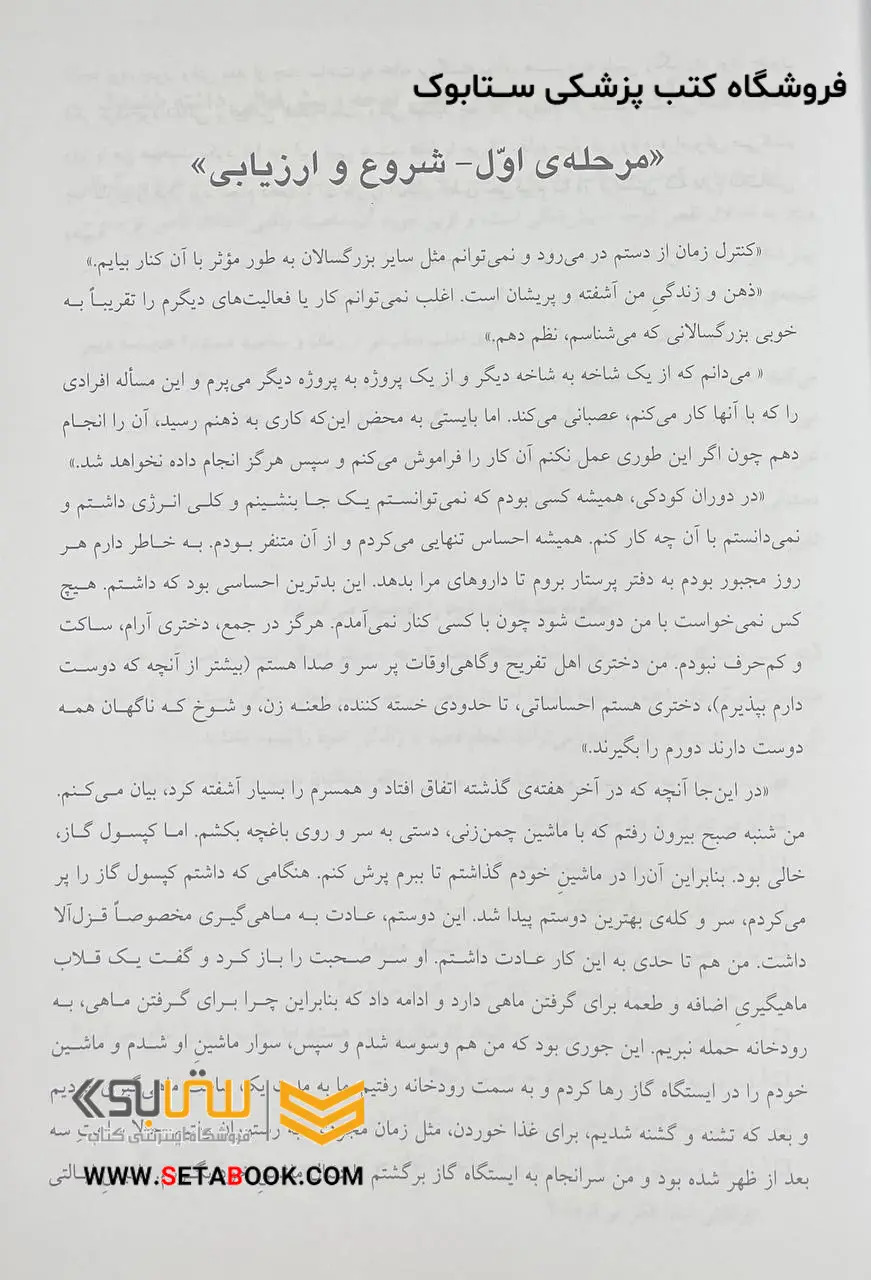 فروشگاه کتب پزشکی ستابوک
«مرحله‌ی اوّل- شروع و ارزیابی»
«کنترل زمان از دستم در می‌رود و نمی‌توانم مثل سایر بزرگسالان به طور مؤثر با آن کنار بیایم.»
«ذهن و زندگیِ من آشفته و پریشان است. اغلب نمی‌توانم کار یا فعالیت‌های دیگرم را تقریباً به
خوبی بزرگسالانی که می‌شناسم، نظم دهم.»
« می‌دانم که از یک شاخه به شاخه دیگر و از یک پروژه به پروژه دیگر می‌پرم و این مسأله افرادی
را که با آنها کار می‌کنم، عصبانی می‌کند. اما بایستی به محض این‌که کاری به ذهنم رسید، آن را انجام
دهم چون اگر این طوری عمل نکنم آن کار را فراموش می‌کنم و سپس هرگز انجام داده نخواهد شد.»
«در دوران کودکی، همیشه کسی بودم که نمی‌توانستم یک جا بنشینم و کلی انرژی داشتم و
نمی‌دانستم با آن چه کار کنم. همیشه احساس تنهایی می‌کردم و از آن متنفر بودم. به خاطر دارم هر
روز مجبور بودم به دفتر پرستار بروم تا داروهای مرا بدهد. این بدترین احساسی بود که داشتم. هیچ
کس نمی‌خواست با من دوست شود چون با کسی کنار نمی‌آمدم. هرگز در جمع، دختری آرام، ساکت
و کم‌حرف نبودم. من دختری اهل تفریح وگاهی‌اوقات پر سر و صدا هستم (بیشتر از آنچه که دوست
دارم بپذیرم)، دختری هستم احساساتی، تا حدودی خسته کننده، طعنه زن، و شوخ که ناگهان همه
دوست دارند دورم را بگیرند.»
«در این‌جا آنچه که در آخر هفته‌ی گذشته اتفاق افتاد و همسرم را بسیار آشفته کرد، بیان می‌کنم.
من شنبه صبح بیرون رفتم که با ماشین چمن‌زنی، دستی به سر و روی باغچه بکشم. اما کپسول گاز،
خالی بود. بنابراین آن‌را در ماشینِ خودم گذاشتم تا ببرم پرش کنم. هنگامی که داشتم کپسول گاز را پر
می‌کردم، سر و کله‌ی بهترین دوستم پیدا شد. این دوستم، عادت به ماهی‌گیری مخصوصاً قزل‌آلا
داشت. من هم تا حدی به این کار عادت داشتم. او سر صحبت را باز کرد و گفت یک قلاب
ماهیگیریِ اضافه و طعمه برای گرفتن ماهی دارد و ادامه داد که بنابراین چرا برای گرفتن ماهی، به
رودخانه حمله نبریم. این جوری بود که من هم وسوسه شدم و سپس، سوار ماشینِ او شدم و ماشین
خودم را در ایستگاه گاز رها کردم و به سمت رودخانه رفتیم. ما به مدت یک ساعت ماهی‌گیری کردیم
و بعد که تشنه و گشنه شدیم، برای غذا خوردن، مثل زمان به رستوران سه
بعد از ظهر شده بود و من سرانجام به ایستگاه گاز برگشتم
ستابوک
فروشگاه اینترنتی کتاب
WWW.SETABOOK.COM